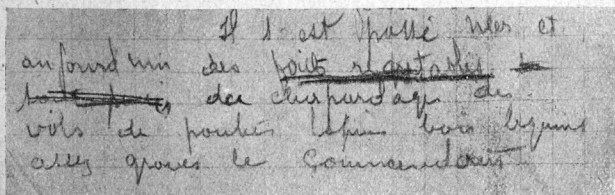 Il s'est passé hier et
aujourd'hui des faits regrettables
des chapardages des
vols de poules lapins bois légumes
assez graves le Commandant